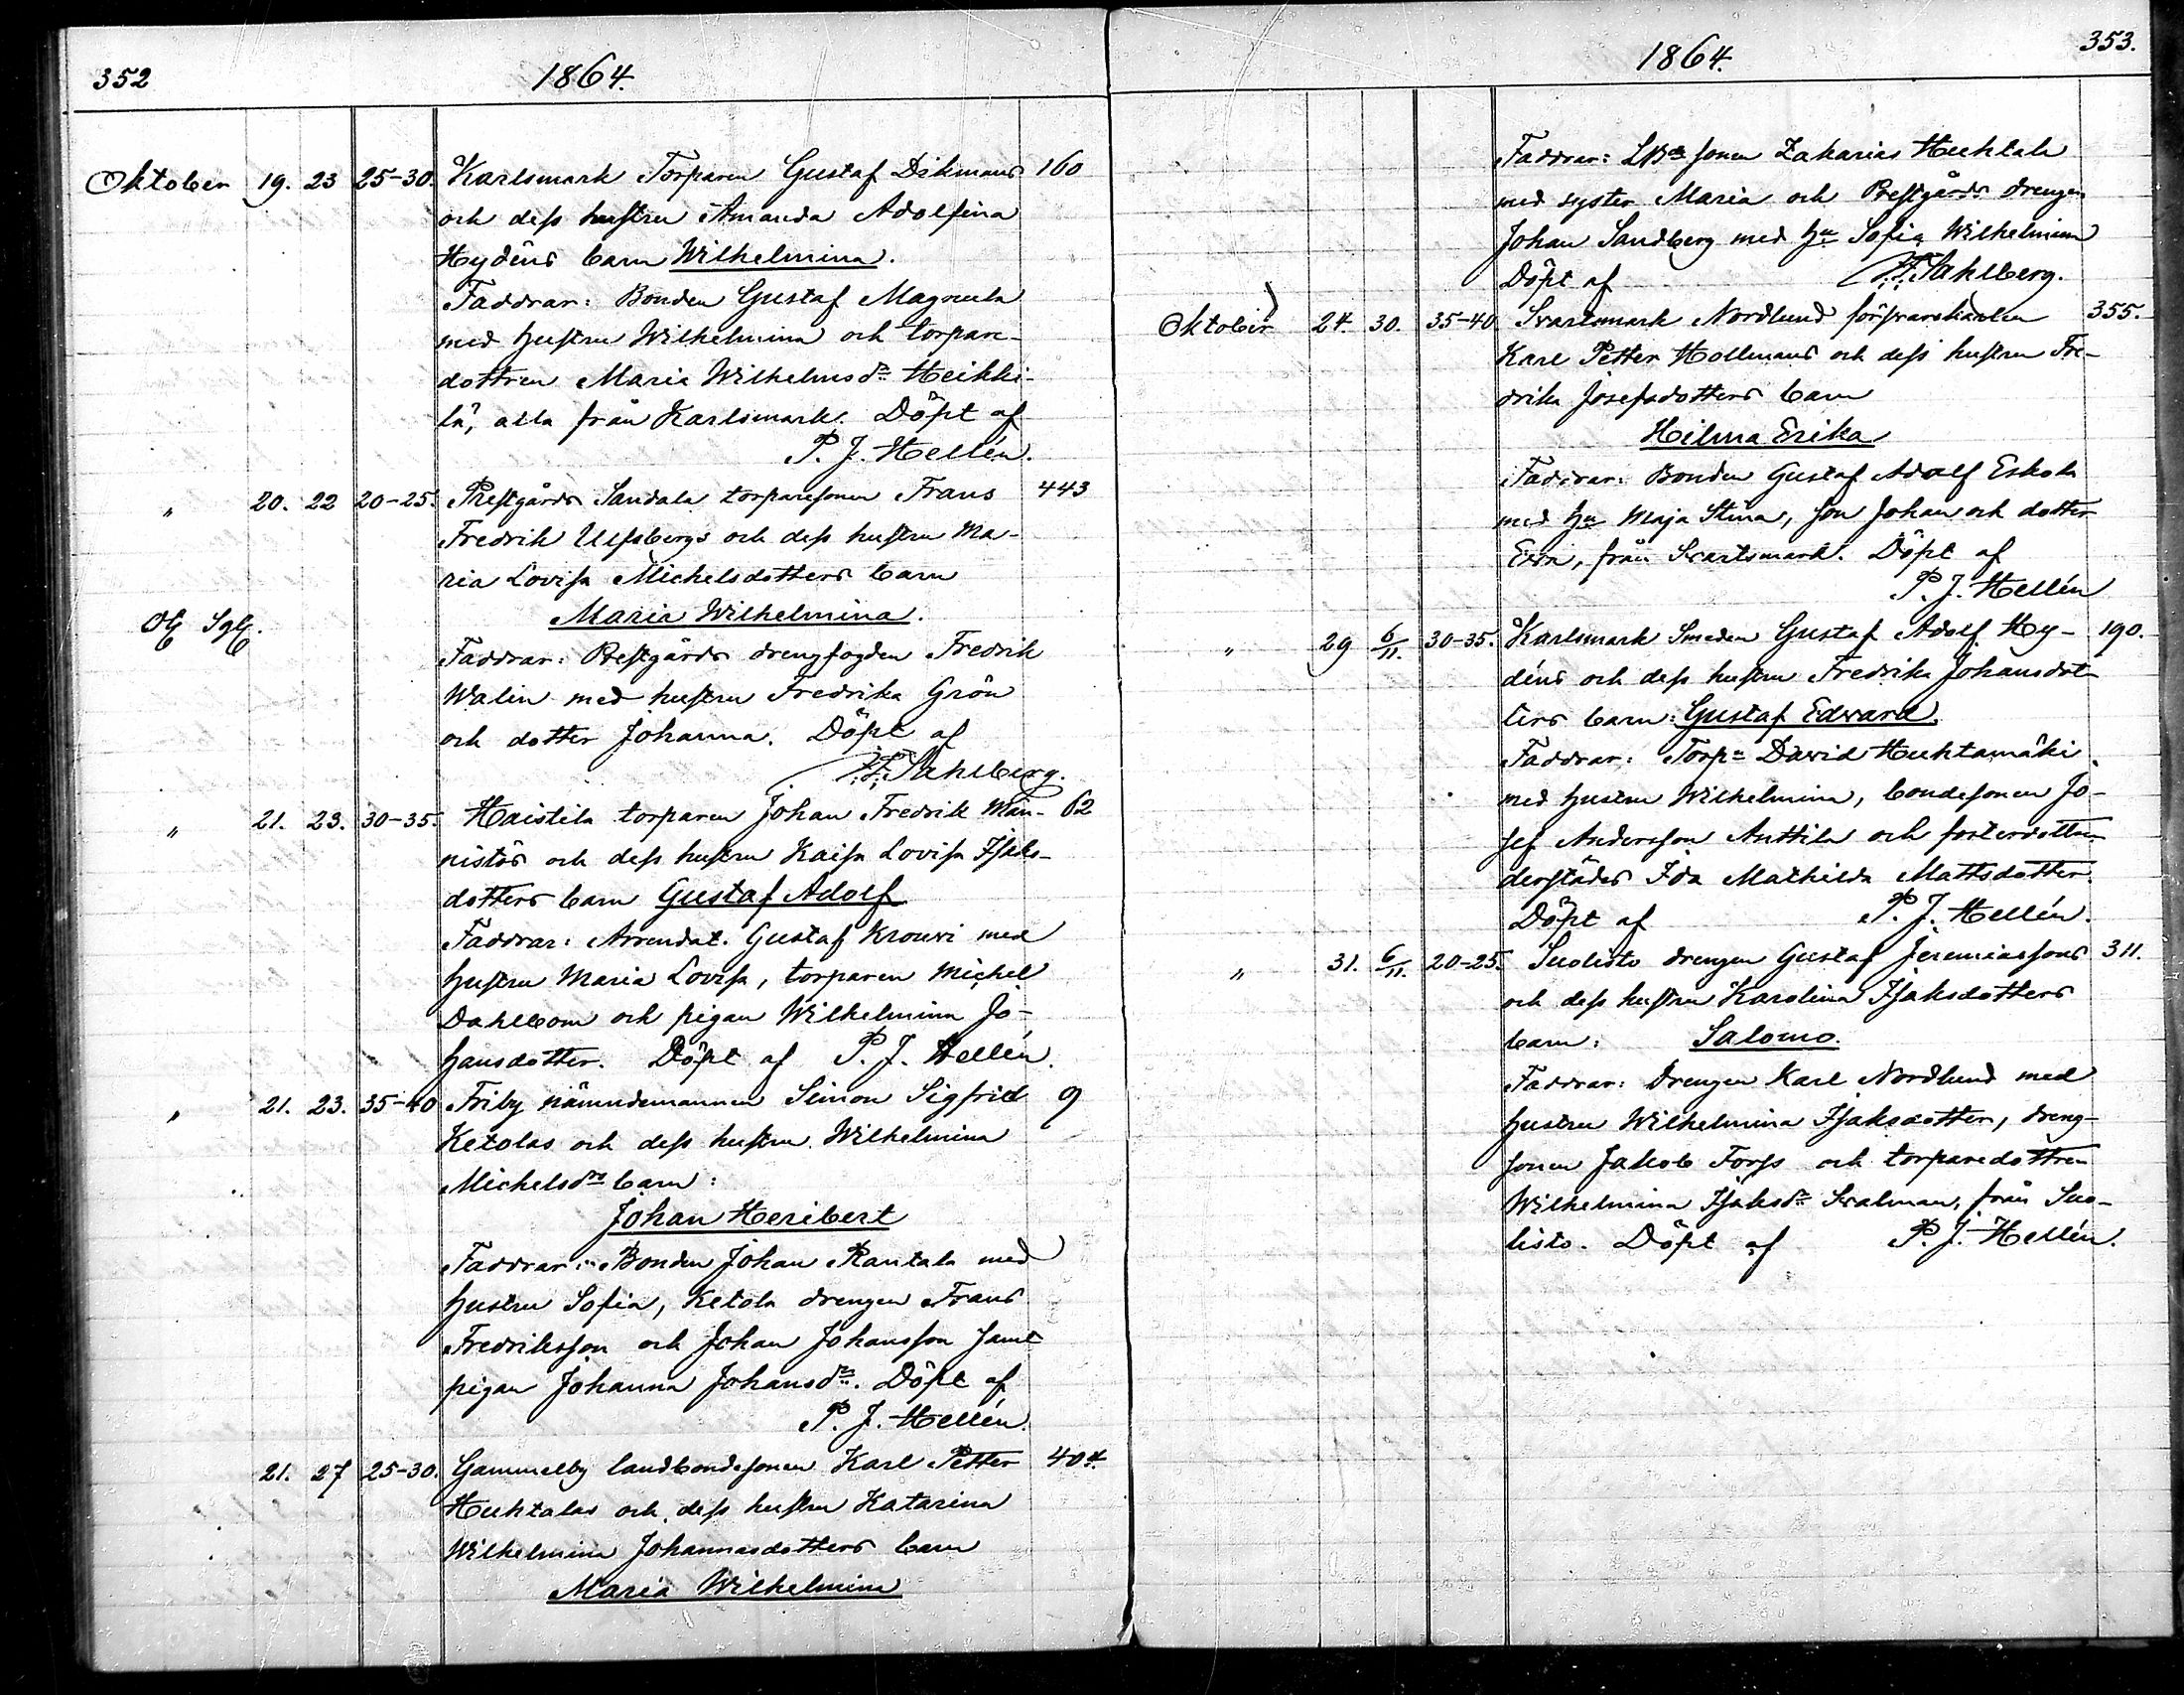 352
1864.
Oktober 19. 23 25-30. Karlsmark Torparen Gustaf Dikmans 160
och dess hustru Amanda Adolfina
Hydéns barn Wilhelmina.
Faddrar: Bonden Gustaf Magnula
med hustru Wilhelmina och torpare-
dottren Maria Wilhelmsdr Heikki-
lä, alla från Karlsmark. Döpt af
P. J. Hellén.
" 20. 22 20-25. Prestgårds Sandala torparesonen Frans 443
Fredrik Ulfsbergs och dess hustru Ma-
ria Lovisa Michelsdotters barn
Maria Wilhelmina.
Faddrar: Prestgårds drengfogden Fredrik
Walin med hustru Fredrika Grön
och dotter Johanna. Döpt af
F. Sahlberg.
" 21. 23. 30-35. Haistila torparen Johan Fredrik Män- 62
nistös och dess hustru Kaisa Lovisa Isaks-
dotters barn Gustaf Adolf
Faddrar: Arrendat. Gustaf Krouvi med
hustru Maria Lovisa, torparen Michel
Dahlbom och pigan Wilhelmina Jo-
hansdotter. Döpt af P. J. Hellén.
" 21. 23. 35-40 Friby nämndemannen Simon Sigfrid 9
Ketolas och dess hustru Wilhelmina
Michelsdrs barn:
Johan Heribert
Faddrar: Bonden Johan Rantala med
hustru Sofia, Ketola drengen Frans
Fredriksson och Johan Johansson samt
pigan Johanna Johansdr. Döpt af
P. J. Hellén.
21. 27 25-30. Gammelby landbondesonen Karl Petter 404.
Huhtalas och dess hustru Katarina
Wilhelmina Johannasdotters barn
Maria Wilhelmina
353.
1864.
Faddrar: LBde sonen Zakarias Huhtala
med syster Maria och Prestgårds drengen
Johan Sandberg med hu Sofia Wilhelmina
Döpt af F. Sahlberg.
Oktober 24. 30. 35-40 Svartsmark Nordlund försvarskarlen 355.
Karl Petter Hollmans och dess hustru Fre-
drika Josefsdotters barn
Hilma Erika
Faddrar: Bonden Gustaf Adolf Eskola
med hu Maja Stina, son Johan och dotter
Eva, från Svartsmark. Döpt af
P. J. Hellén
" 29 6/11. 30-35. Karlsmark Smeden Gustaf Adolf Hy- 190.
déns och dess hustru Fredrika Johansdot-
ters barn: Gustaf Edvard.
Faddrar: Torpn David Huhtamäki
med hustru Wilhelmina, bondesonen Jo-
sef Andersson Anttila och fosterdottren
derstädes Ida Mathilda Mattsdotter.
Döpt af P. J. Hellén.
" 31. 6/11. 20-25. Suolisto drengen Gustaf Jeremiassons 311.
och dess hustru Karolina Isaksdotters
barn: Salomo.
Faddrar: Drengen Karl Nordlund med
hustru Wilhelmina Isaksdotter, dreng-
sonen Jakob Forss och torparedottren
Wilhelmina Isaksdr Svalman, från Suo-
listo. Döpt af P. J. Hellén.